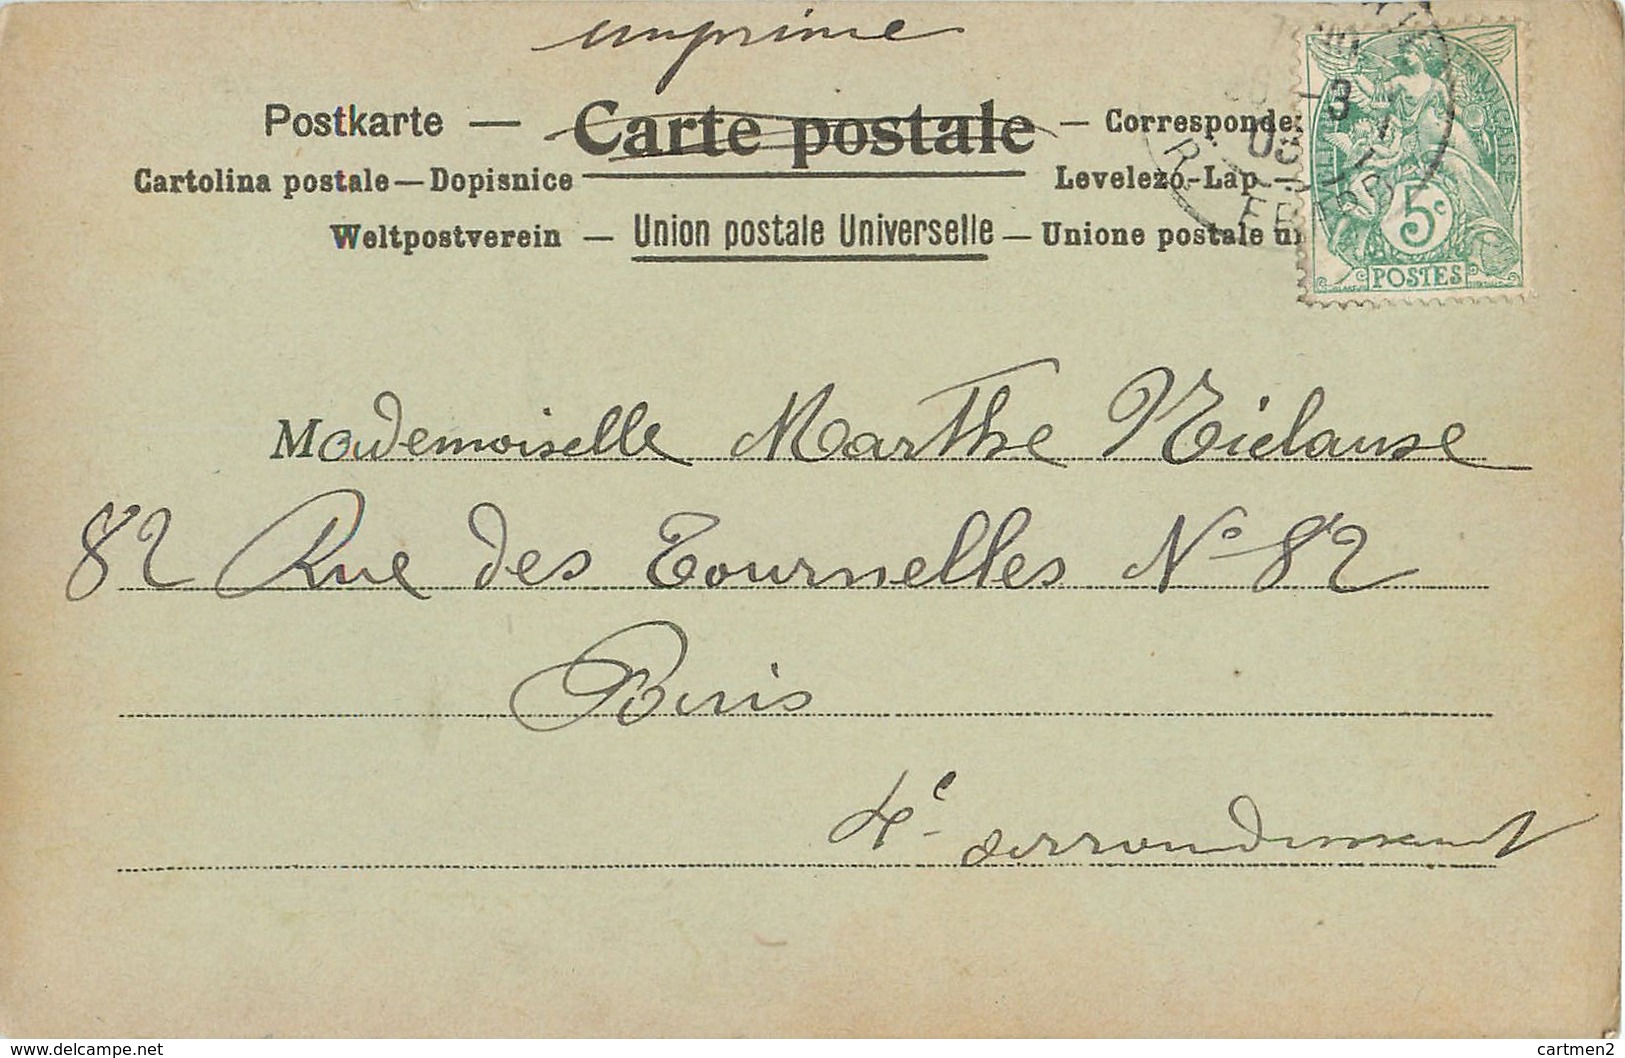 imprimé
Postkarte — Carte postale — Corresponde
Cartolina postale — Dopisnice
Levelezó-Lap —
Weltpostverein — Union postale Universelle — Unione postale un
FRANÇAISE
5c
POSTES
Mademoiselle Marthe
82 Rue des Tournelles N° 82
Paris
4e arrondissement
https://www.delcampe.net
cartmen2